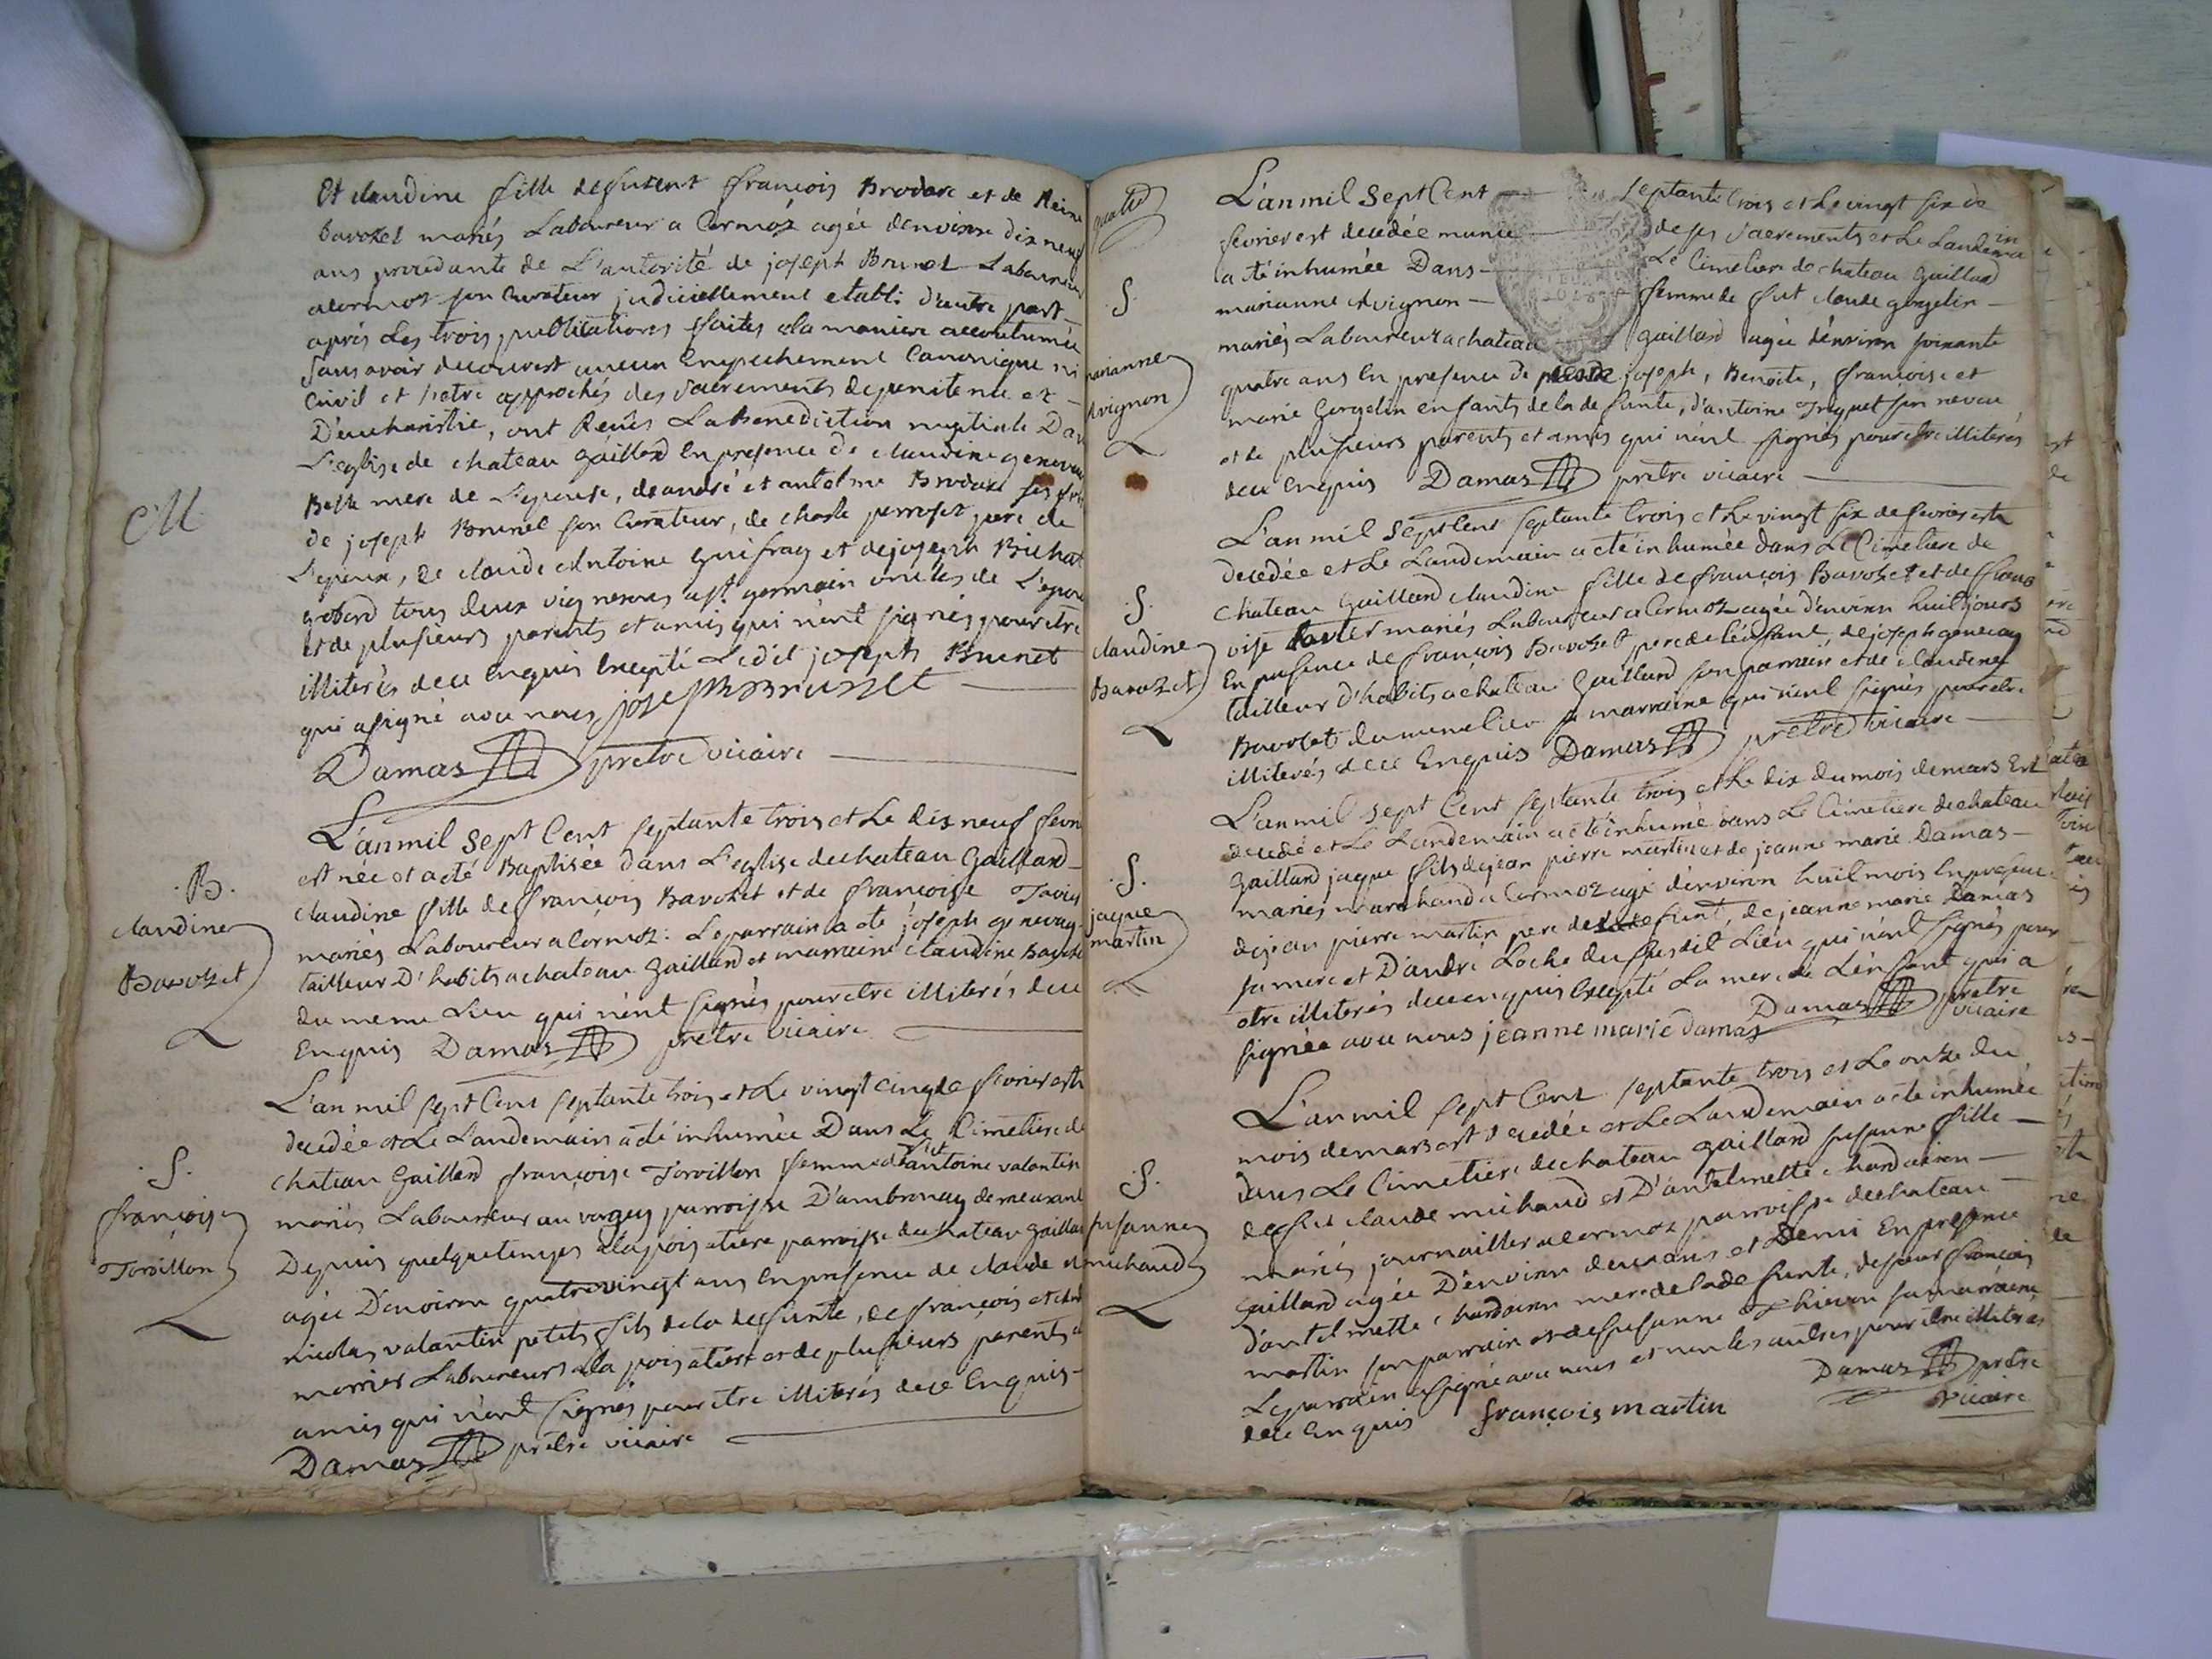 Et claudine fille defurent françois Brodare et de Reine
bavozet mariés Laboureur a Cormoz agée denviron dix neuf
ans procedante de L'autorité de joseph Brunet Laboureur
acormoz son Curateur judiciellement etabli d'autre part
après Les trois publications faites ala maniere accoutumée
sans avoir decouvert aucun Empechement Canonique ni
Civil et s'etre approchés des sacrements depenitence et
D'eucharistie, ont Reçus La Benediction nuptiale Dans
L'eglise de chateau gaillard En presence de claudine
Belle mere de L'epouse, de andré et antelme Brodare ses
de joseph Brunet son Curateur, de charle perrozet pere de
L'epoux, de claude Antoine guifray et dejoseph Bichat
tous deux vignerons a st germain oncles de L'epoux
et de plusieurs parents et amis qui n'ont signés pour etre
illiterés dece Enquis Excepté Ledit joseph Brunet
qui a signé avec nous joseph Brunet
Damas pretre vicaire
M
L'an mil sept Cent septante trois et Le dix neuf
est née et a eté Baptisée dans L'eglise dechateau Gaillard
claudine fille de françois Bavozet et de françoise
mariés Laboureur a Cormoz: Le parrain a ete joseph genevay
tailleur D'habits a chateau gaillard et marraine claudine
du meme Lieu qui n'ont signés pour etre illiterés dece
Enquis Damas pretre vicaire
.B.
claudine
Bavozet
L'an mil sept Cent septante trois et Le vingt cinq de fevrier est
decedée et Le Landemain a eté inhumée Dans Le Cimetiere de
chateau Gaillard françoise Torvillon femme de fut antoine valantin
mariés Laboureur au vorgey parroisse D'ambronay demeurant
Depuis quelque temps ala poisatiere parroisse de chateau gaillard
agée D'environ quatrevingt ans En presence de claude et
nicolas valantin petits fils de la defunte, de françois et
morrier Laboureurs ala poisatiere et de plusieurs parents et
amis qui n'ont signés pour etre illiterés dece Enquis
Damas pretre vicaire
.S.
françoise
Torvillon
quatre
L'an mil sept Cent septante trois et Le vingt six de
fevrier est decedée munie de ses sacrements et Le Landemain
a eté inhumée Dans Le Cimetiere de chateau gaillard
marianne Avignon femme de fut claude gorgelin
mariés Laboureur a chateau gaillard agée d'environ soixante
quatre ans En presence de joseph, Benoite, françoise et
marie Gorgelin enfants de la defunte, d'antoine son neveu
et de plusieurs parents et amis qui n'ont signés pour etre illiterés
dece Enquis Damas pretre vicaire
.S.
marianne
Avignon
L'an mil sept Cent septante trois et Le vingt six de fevrier est
decedée et Le Landemain a eté inhumée dans Le Cimetiere de
chateau Gaillard claudine fille de françois Bavozet et de
mariés Laboureur a Cormoz agée d'environ huit jours
En presence de françois Bavozet pere de L'enfant, de joseph genevay
tailleur d'habits a chateau Gaillard son parrain et de claudine
Bavozet du meme lieu sa marraine qui n'ont signés pour etre
illiterés dece Enquis Damas pretre vicaire
.S.
claudine
Bavozet
L'an mil sept Cent septante trois et Le dix du mois de mars est
decedé et Le Landemain a eté inhumé dans Le Cimetiere de chateau
Gaillard jaque fils de jean pierre martin et de jeanne marie Damas
mariés marchand a Cormoz agé d'environ huit mois En presence
de jean pierre martin pere de defunt, de jeanne marie Damas
sa mere et D'andré Loche du susdit Lieu qui n'ont signés pour
etre illiterés dece enquis Excepté La mere de L'enfant qui a
signée avec nous jeanne marie damas Damas pretre
vicaire
.S.
jaque
martin
L'an mil sept Cent septante trois et Le onze du
mois de mars est decedée et Le Landemain a eté inhumée
dans Le Cimetiere de chateau gaillard susanne fille
de fut claude michaud et D'antelmette chardeiron
mariés journailler a cormoz parroisse de chateau
gaillard agée D'environ deux ans et Demi En presence
d'antelmette chardeiron mere de la defunte, de sieur françois
martin son parrain et de susanne Thievon sa marraine
Le parrain a signé avec nous et non les autres pour etre illiterés
dece Enquis françois martin Damas pretre
vicaire
.S.
susanne
michaud